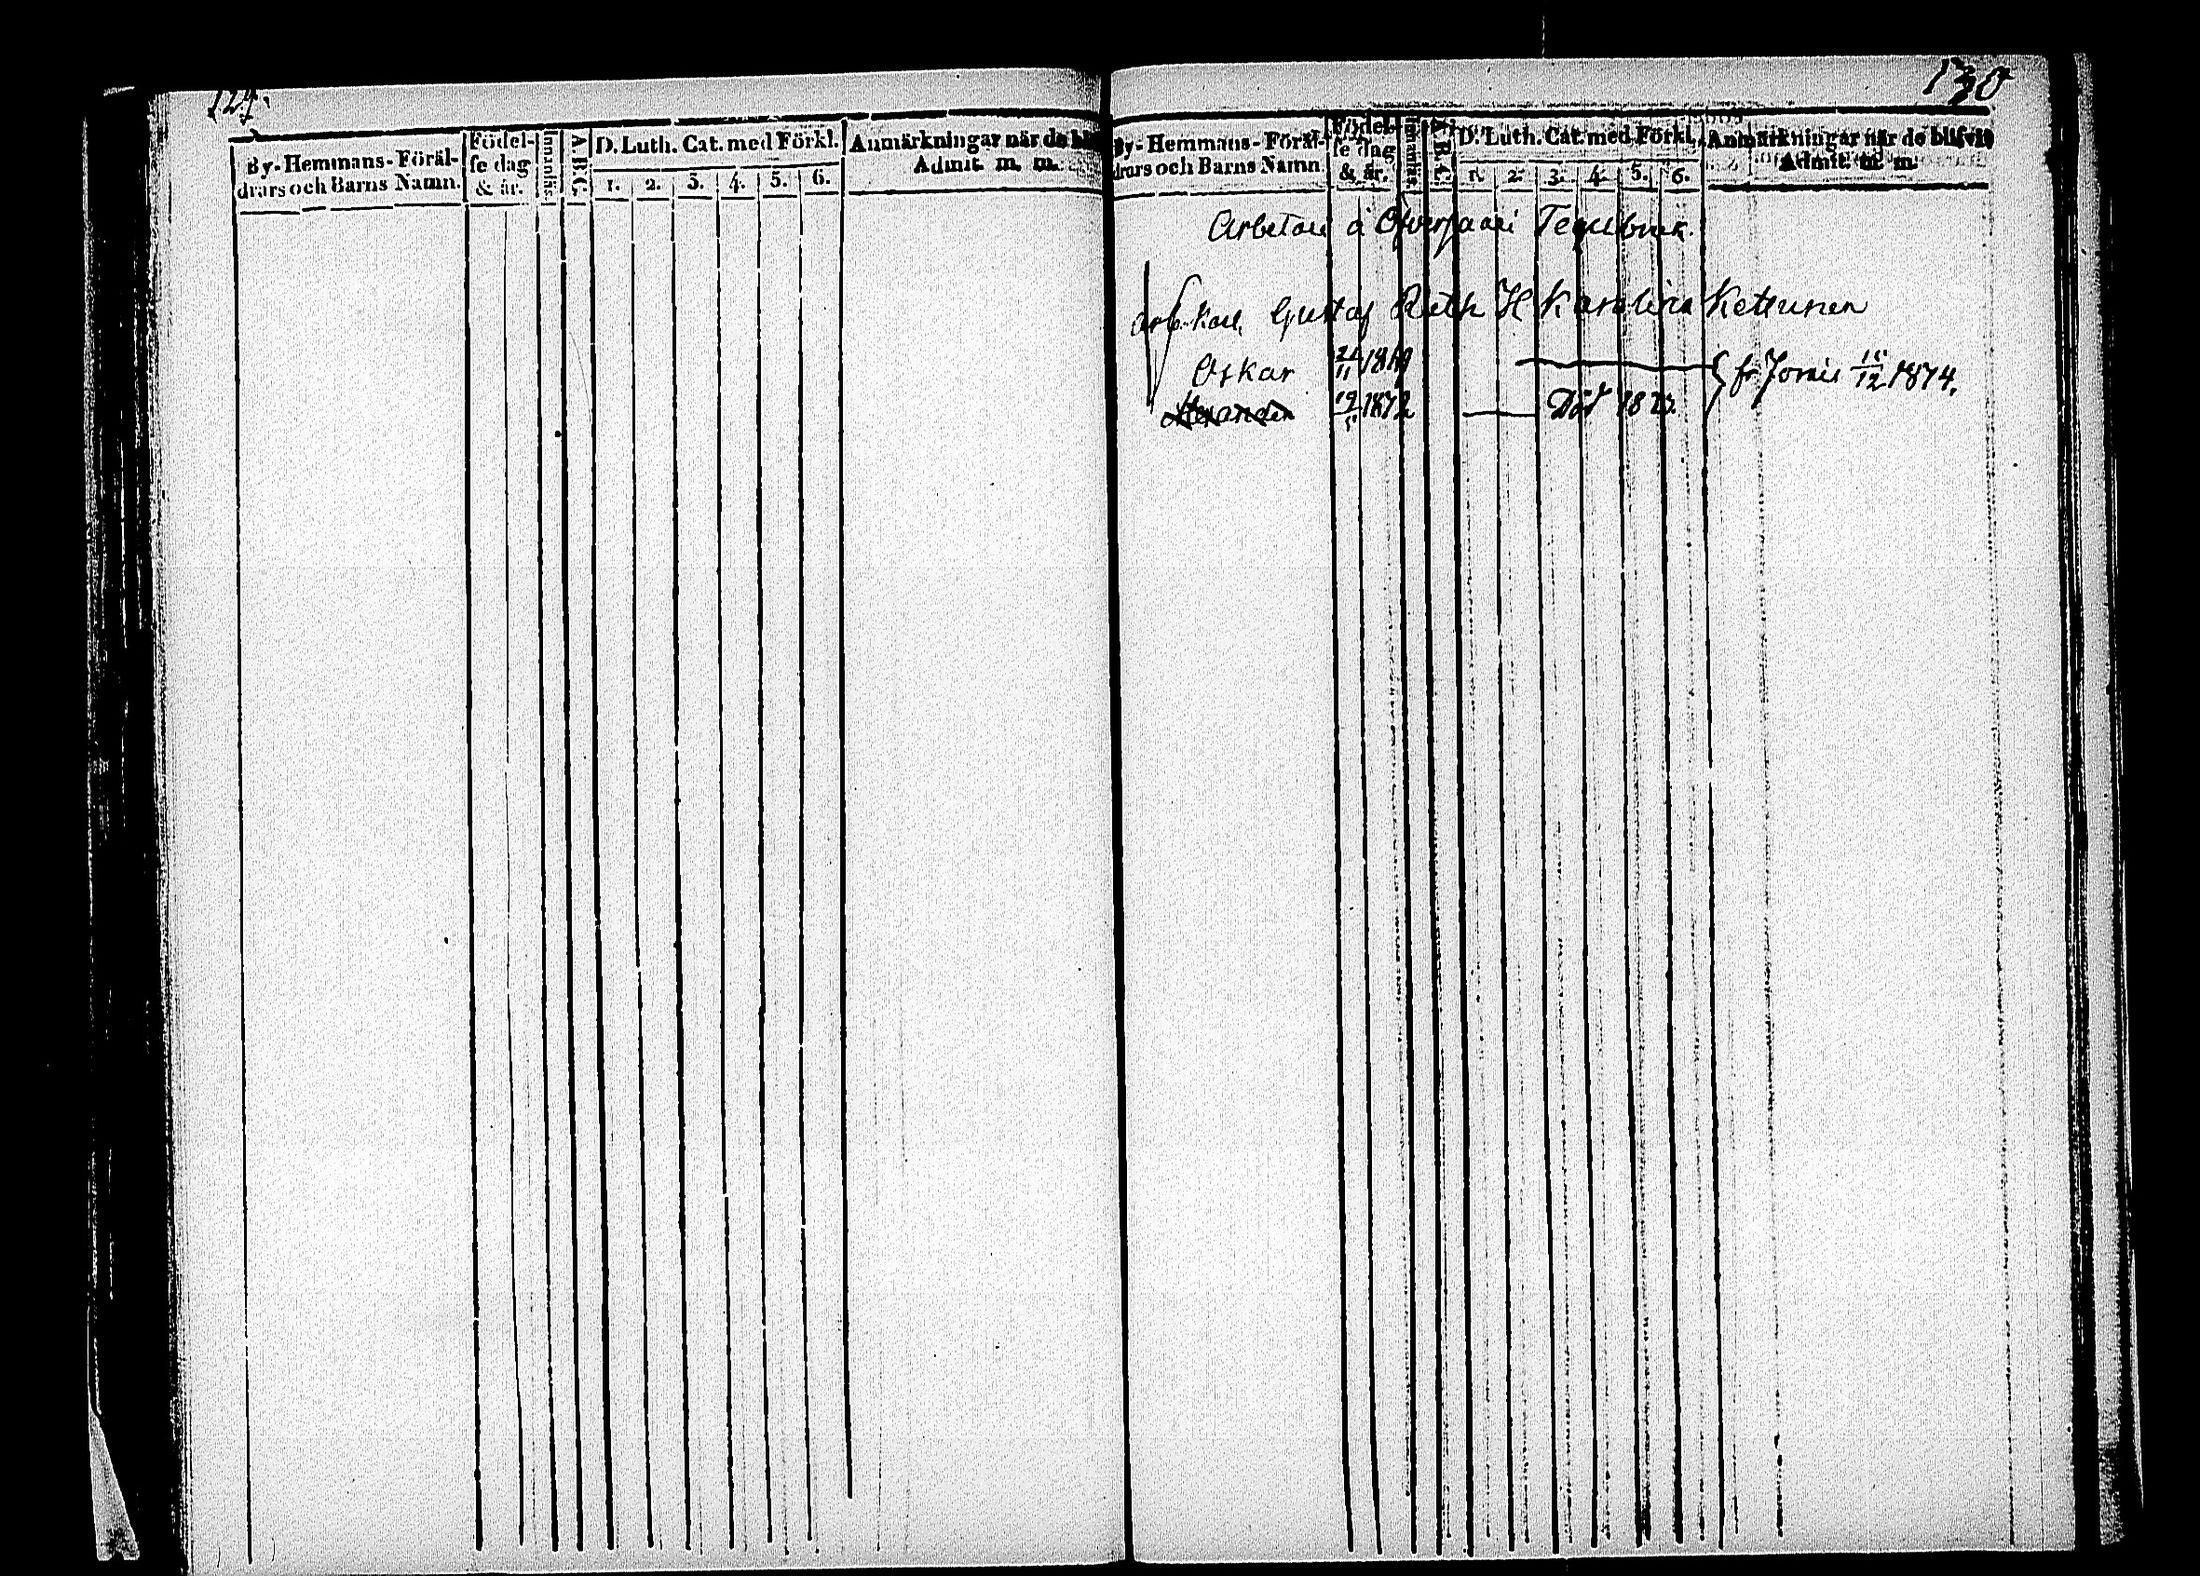 By-Hemmans-Föräl-
drars och Barns Namn.
Födel-
se dag
& år.
Innanläs.
A.B.C.
D. Luth. Cat. med Förkl.
1. 2. 3. 4. 5. 6.
Anmärkningar när de
Admit. m. m.
130
By-Hemmans-Föräl-
drars och Barns Namn
Födel-
se dag
& år.
Innanläs.
A.B.C.
D. Luth. Cat. med Förkl.
1. 2. 3. 4. 5. 6.
Anmärkningar när de blifvit
Admit. m. m.
Arbetare å Tegelbruk.
Arb. karl. Gustaf H Karolina Kettunen
Oskar 21/11 18 fr. Jorois 15/12 1874.
Alexander 19/5 1872 Död 18